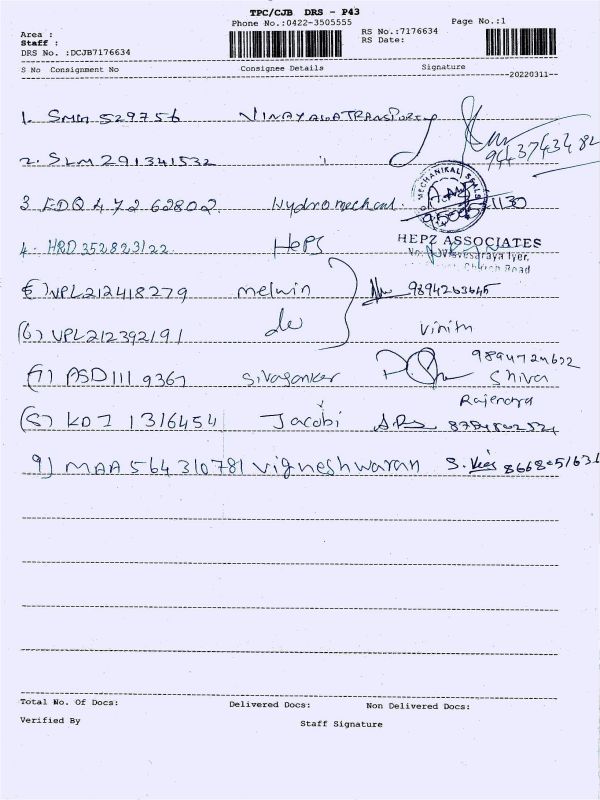 TPC/CJB DRS - P43
Phone No.:0422-3505555
Page No.:1
Area :
Staff :
DRS No. :DCJB7176634
RS No.:7176634
RS Date:
S No Consignment No Consignee Details Signature
20220311
1. SMM 529756 VINAYAGA TRANSPORTS
9443743482
2. SLM 291341532 "
3 EDQ 472 62802. Hydromechcal.
MECHANIKAL SEALS
1130
4. HRD 352823122. HePS
HEPZ ASSOCIATES
Visvesaraya Iyer,
Church Road
5) VPL212418279 melwin 9894263645
(6) VPL212392191 do Vinith
(7) PSD111 9367 Sivasankar Shiva
9894724622
Rajendra
(8) KDI 1316454 Jacobi
9) MAA 564310781 vigneshwaran
Total No. Of Docs: Delivered Docs: Non Delivered Docs:
Verified By Staff Signature